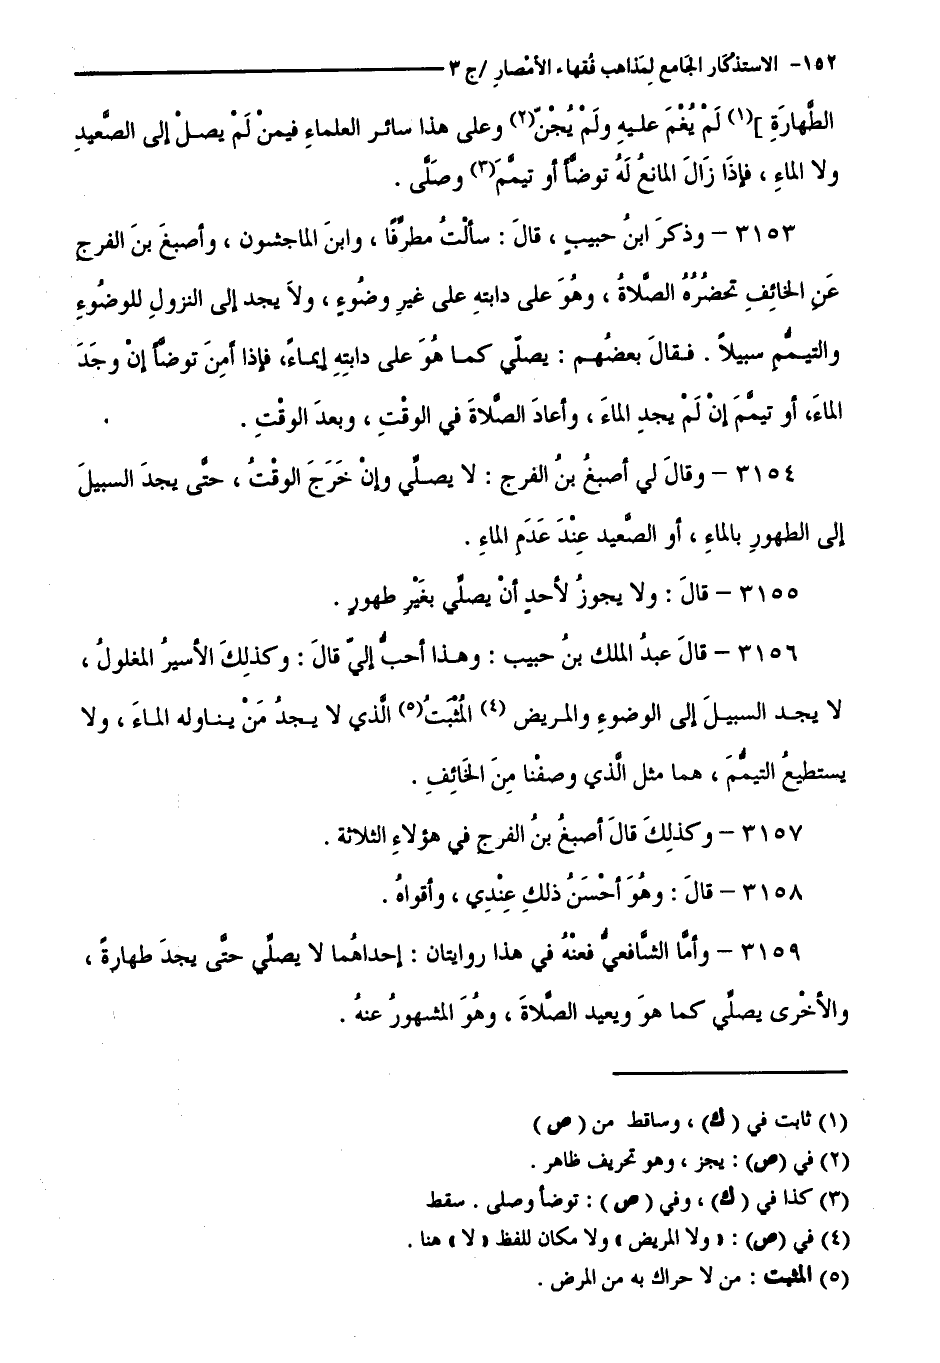 ١٥٢- الاستذكار الجامع لمذاهب فقهاء الأمصار /ج ٣
الطَّهارَةِ ](١) لَمْ يُغْمَ عليهِ ولَمْ يُجْنّ(٢) وعلى هذا سائر العلماءِ فيمنْ لَمْ يصلْ إلى الصَّعيدِ
ولا الماءِ ، فإذَا زَالَ المانعُ لَهُ توضَّأَ أو تيمَّمَ(٣) وصَلَّى .
٣١٥٣ – وذكرَ ابنُ حبيبٍ ، قالَ : سألْتُ مطرِّفًا ، وابنَ الماجشون ، وأصبغَ بنَ الفرجِ
عَنِ الخائِفِ تحضُرُهُ الصَّلاةُ ، وهُوَ على دابتهِ على غيرِ وضُوءٍ ، ولاَ يجد إلى النزولِ للوضُوءِ
والتيمُّمِ سبيلاً . فقالَ بعضُهم : يصلّي كما هُوَ على دابتِهِ إيماءً، فإذا أمِنَ توضَّأَ إنْ وجَدَ
الماءَ، أو تيمَّمَ إنْ لَمْ يجدِ الماءَ ، وأعادَ الصَّلاةَ في الوقْتِ ، وبعدَ الوقْتِ .
٣١٥٤ – وقالَ لي أصبغُ بنُ الفرجِ : لا يصلِّي وإنْ خَرَجَ الوقْتُ ، حتَّى يجدَ السبيلَ
إلى الطهورِ بالماءِ ، أو الصَّعيد عِنْدَ عَدَمِ الماءِ .
٣١٥٥ – قالَ : ولا يجوزُ لأحدٍ أنْ يصلِّي بغَيْرِ طهورٍ .
٣١٥٦ – قالَ عبدُ الملك بنُ حبيب : وهذا أحبُّ إليّ قالَ : وكذلِكَ الأسيرُ المغلولُ ،
لا يجد السبيلَ إلى الوضوءِ والمريض (٤) المُثْبَتُ(٥) الَّذي لا يجدُ مَنْ يناوله الماءَ ، ولا
يستطيعُ التيمُّمَ ، هما مثل الَّذي وصفْنا مِنَ الخَائِفِ .
٣١٥٧ – وكذلِكَ قالَ أصبغُ بنُ الفرجِ في هؤلاءِ الثلاثة .
٣١٥٨ – قالَ : وهُوَ أحْسَنُ ذلكِ عِنْدِي ، وأقواهُ .
٣١٥٩ – وأمَّا الشَّافعيُّ فعنْهُ في هذا روايتان : إحداهُما لا يصلِّي حتَّى يجدَ طهارةً ،
والأخْرى يصلِّي كما هوَ ويعيد الصَّلاةَ ، وهُوَ المشهورُ عنهُ .
(١) ثابت في (ك) ، وساقط من (ص)
(٢) في (ص) : يجز ، وهو تحريف ظاهر .
(٣) كذا في (ك) ، وفي (ص) : توضأ وصلى . سقط
(٤) في (ص) : « ولا المريض » ولا مكان للفظ « لا » هنا .
(٥) المثبت : من لا حراك به من المرض .